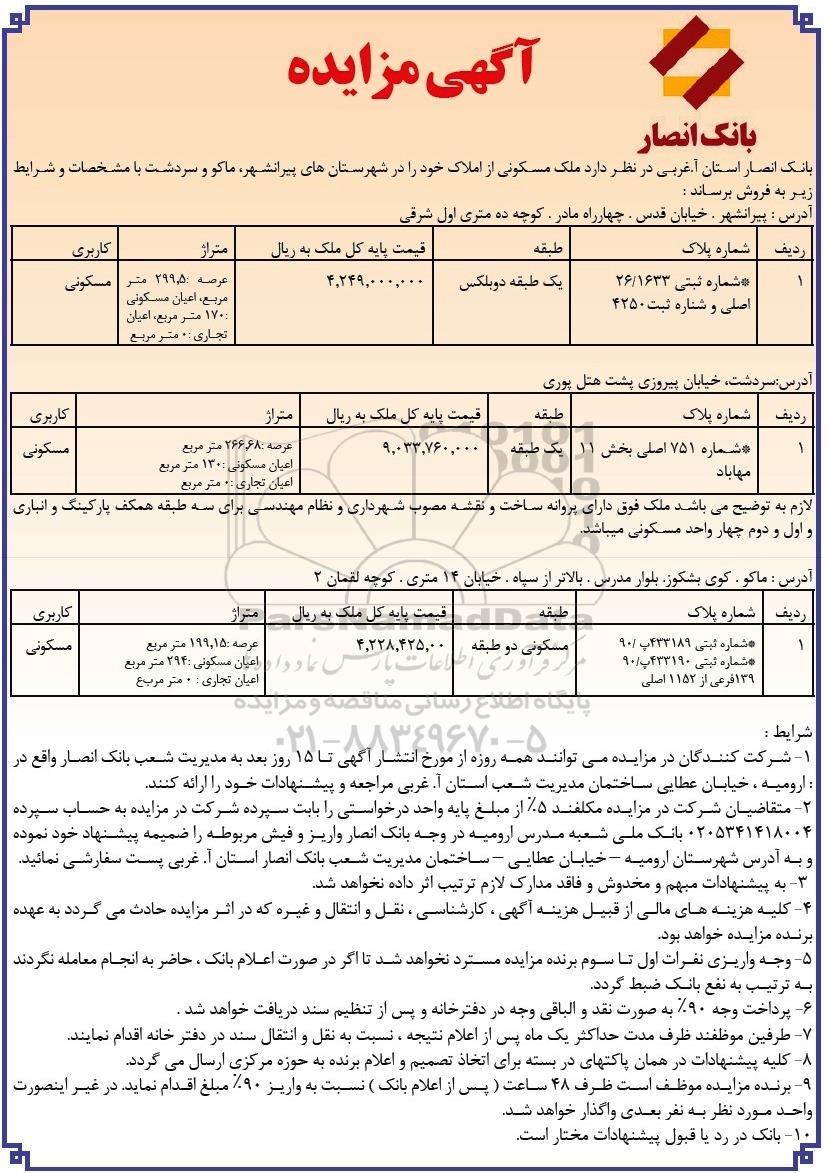 آگهی مزایده
بانک انصار
بانک انصار استان آ.غربی در نظر دارد ملک مسکونی از املاک خود را در شهرستان های پیرانشهر، ماکو و سردشت با مشخصات و شرایط
زیر به فروش برساند :
آدرس : پیرانشهر . خیابان قدس . چهارراه مادر . کوچه ده متری اول شرقی
ردیف شماره پلاک طبقه قیمت پایه کل ملک به ریال متراژ کاربری
۱ *شماره ثبتی ۲۶/۱۶۳۳ یک طبقه دوبلکس ۴,۲۴۹,۰۰۰,۰۰۰ عرصه :۲۹۹,۵ متر مسکونی
اصلی و شناره ثبت۴۲۵۰ مربع، اعیان مسکونی
:۱۷۰ متر مربع، اعیان
تجاری :۰ متر مربع
آدرس:سردشت، خیابان پیروزی پشت هتل پوری
ردیف شماره پلاک طبقه قیمت پایه کل ملک به ریال متراژ کاربری
۱ *شماره ۷۵۱ اصلی بخش ۱۱ یک طبقه ۹,۰۳۳,۷۶۰,۰۰۰ عرصه :۲۶۶,۶۸ متر مربع مسکونی
مهاباد اعیان مسکونی :۱۳۰ متر مربع
اعیان تجاری :۰ متر مربع
لازم به توضیح می باشد ملک فوق دارای پروانه ساخت و نقشه مصوب شهرداری و نظام مهندسی برای سه طبقه همکف پارکینگ و انباری
و اول و دوم چهار واحد مسکونی میباشد.
آدرس : ماکو . کوی بشکوز. بلوار مدرس . بالاتر از سپاه . خیابان ۱۴ متری . کوچه لقمان ۲
ردیف شماره پلاک طبقه قیمت پایه کل ملک به ریال متراژ کاربری
۱ *شماره ثبتی ۴۳۳۱۸۹پ /۹۰ مسکونی دو طبقه ۴,۲۲۸,۴۲۵,۰۰ عرصه :۱۹۹,۱۵ متر مربع مسکونی
*شماره ثبتی ۴۳۳۱۹۰پ/۹۰ اعیان مسکونی :۲۹۴ متر مربع
۱۳۹فرعی از ۱۱۵۲ اصلی اعیان تجاری : ۰ متر مربع
ParsNamadData
مرکز فرآوری اطلاعات پارس نماد داده
پایگاه اطلاع رسانی مناقصه و مزایده
۰۲۱-۸۸۳۴۹۶۷۰-۵
شرایط :
۱- شرکت کنندگان در مزایده می توانند همه روزه از مورخ انتشار آگهی تا ۱۵ روز بعد به مدیریت شعب بانک انصار واقع در
: ارومیه ، خیابان عطایی ساختمان مدیریت شعب استان آ. غربی مراجعه و پیشنهادات خود را ارائه کنند.
۲- متقاضیان شرکت در مزایده مکلفند ۵٪ از مبلغ پایه واحد درخواستی را بابت سپرده شرکت در مزایده به حساب سپرده
۰۲۰۵۳۴۱۴۱۸۰۰۴ بانک ملی شعبه مدرس ارومیه در وجه بانک انصار واریز و فیش مربوطه را ضمیمه پیشنهاد خود نموده
و به آدرس شهرستان ارومیه – خیابان عطایی – ساختمان مدیریت شعب بانک انصار استان آ. غربی پست سفارشی نمائید.
۳- به پیشنهادات مبهم و مخدوش و فاقد مدارک لازم ترتیب اثر داده نخواهد شد.
۴- کلیه هزینه های مالی از قبیل هزینه آگهی ، کارشناسی ، نقل و انتقال و غیره که در اثر مزایده حادث می گردد به عهده
برنده مزایده خواهد بود.
۵- وجه واریزی نفرات اول تا سوم برنده مزایده مسترد نخواهد شد تا اگر در صورت اعلام بانک ، حاضر به انجام معامله نگردند
به ترتیب به نفع بانک ضبط گردد.
۶- پرداخت وجه ۹۰٪ به صورت نقد و الباقی وجه در دفترخانه و پس از تنظیم سند دریافت خواهد شد .
۷- طرفین موظفند ظرف مدت حداکثر یک ماه پس از اعلام نتیجه ، نسبت به نقل و انتقال سند در دفتر خانه اقدام نمایند.
۸- کلیه پیشنهادات در همان پاکتهای در بسته برای اتخاذ تصمیم و اعلام برنده به حوزه مرکزی ارسال می گردد.
۹- برنده مزایده موظف است ظرف ۴۸ ساعت ( پس از اعلام بانک ) نسبت به واریز ۹۰٪ مبلغ اقدام نماید. در غیر اینصورت
واحد مورد نظر به نفر بعدی واگذار خواهد شد.
۱۰- بانک در رد یا قبول پیشنهادات مختار است.